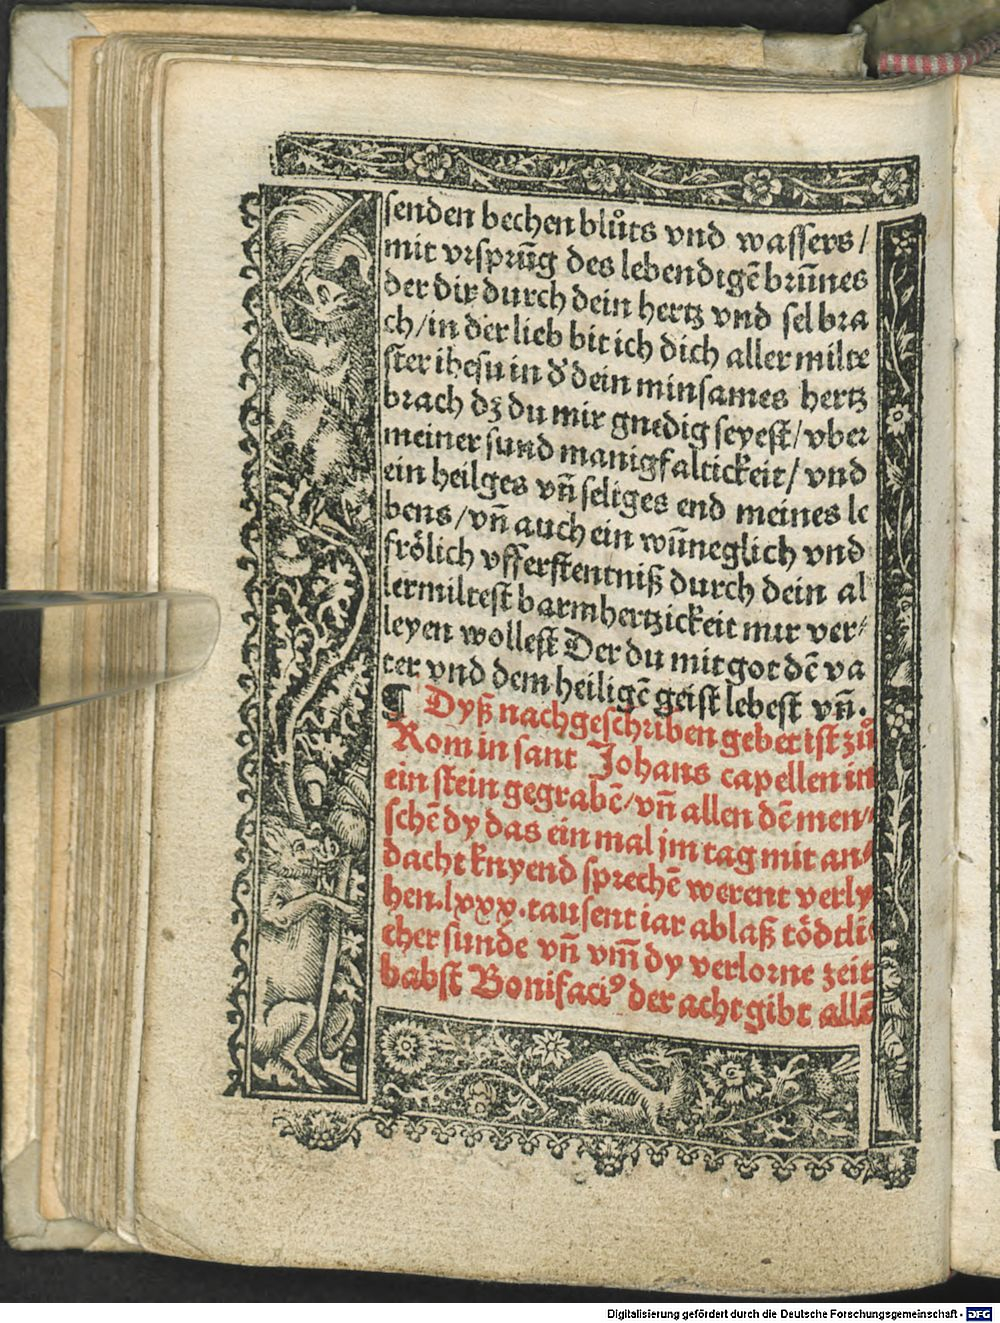 senden bechen blůts vnd wassers /
mit vrsprūg des lebendigē brūnes
der dir durch dein hertz vnd sel bra
ch / in der lieb bit ich dich aller milte
ster ihesu in d̕ dein minsames hertz
brach dz du mir gnedig seyest / vber
meiner sund manigfaltickeit / vnd
ein heilges vn̄ seliges end meines le
bens / vn̄ auch ein wūneglich vnd
frölich vfferstentniß durch dein al
lermiltest barmhertzickeit mir ver⸗
leyen wollest Der du mit got dē va
ter vnd dem heiligē geist lebest vn̄.
¶ Dyß nachgeschriben gebet ist zů
Rom in sant Johans capellen in
ein stein gegrabē / vn̄ allen dē men⸗
schē dy das ein mal jm tag mit an⸗
dacht knyend sprechē werent verly
hen .lxxx. tausent iar ablaß tödtli⸗
cher sunde vn̄ vm̄ dy verlorne zeit
babst Bonifaciꝰ der acht gibt allē
Digitalisierung gefördert durch die Deutsche Forschungsgemeinschaft - DFG